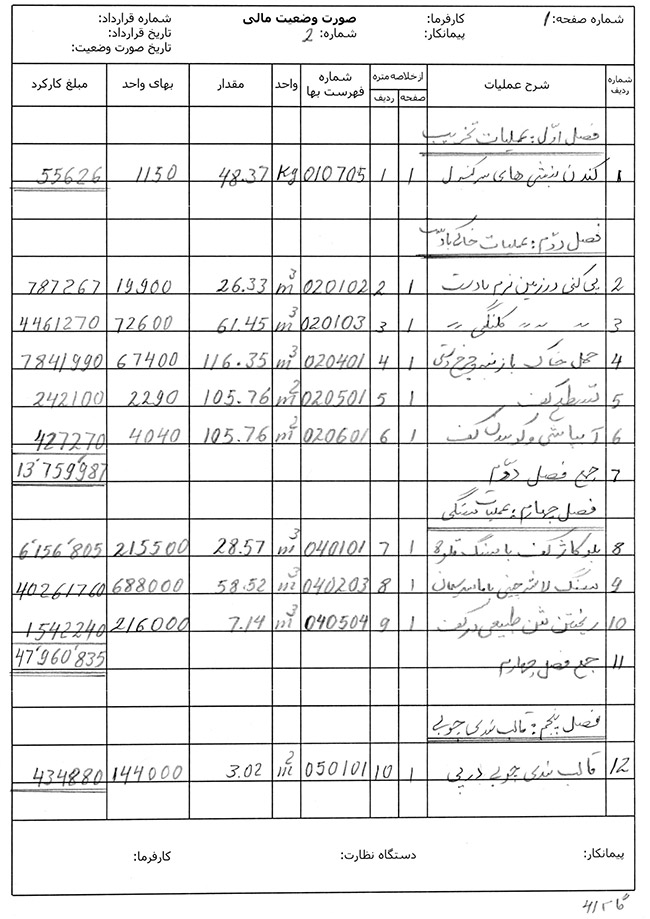 شماره صفحه: 1 کارفرما: صورت وضعیت مالی شماره قرارداد:
پیمانکار: شماره: 2 تاریخ قرارداد:
تاریخ صورت وضعیت:
شماره ردیف شرح عملیات ازخلاصه متره صفحه ردیف شماره فهرست بها واحد مقدار بهای واحد مبلغ کارکرد
فصل اوّل: عملیات تخریب
1 کندن نبشی های سرکنسول 1 1 010705 Kg 48.37 1150 55626
فصل دوّم: عملیات خاکی بادست
2 پی کنی در زمین نرم بادست 1 2 020102 m³ 26.33 19,900 787267
3 〃 〃 〃 کلنگی 〃 1 3 020103 m³ 61.45 72600 4461270
4 حمل خاک با زنبه و چرخ دستی 1 4 020401 m³ 116.35 67400 7841990
5 تسطیح کف 1 5 020501 m² 105.76 2290 242100
6 آبپاشی و کوبیدن کف 1 6 020601 m² 105.76 4040 427270
7 جمع فصل دوّم 13'759'987
فصل چهارم: عملیات سنگی
8 بلوکاژ کف با سنگ قلوه 1 7 040101 m³ 28.57 215500 6'156'805
9 سنگ لاشه چینی با ماسه سیمان 1 8 040203 m³ 58.52 688000 40261760
10 ریختن شن طبیعی در کف 1 9 040504 m³ 7.14 216000 1542240
11 جمع فصل چهارم 47'960'835
فصل پنجم: قالب بندی چوبی
12 قالب بندی چوبی در پی 1 10 050101 m² 3.02 144000 434880
پیمانکار: دستگاه نظارت: کارفرما: